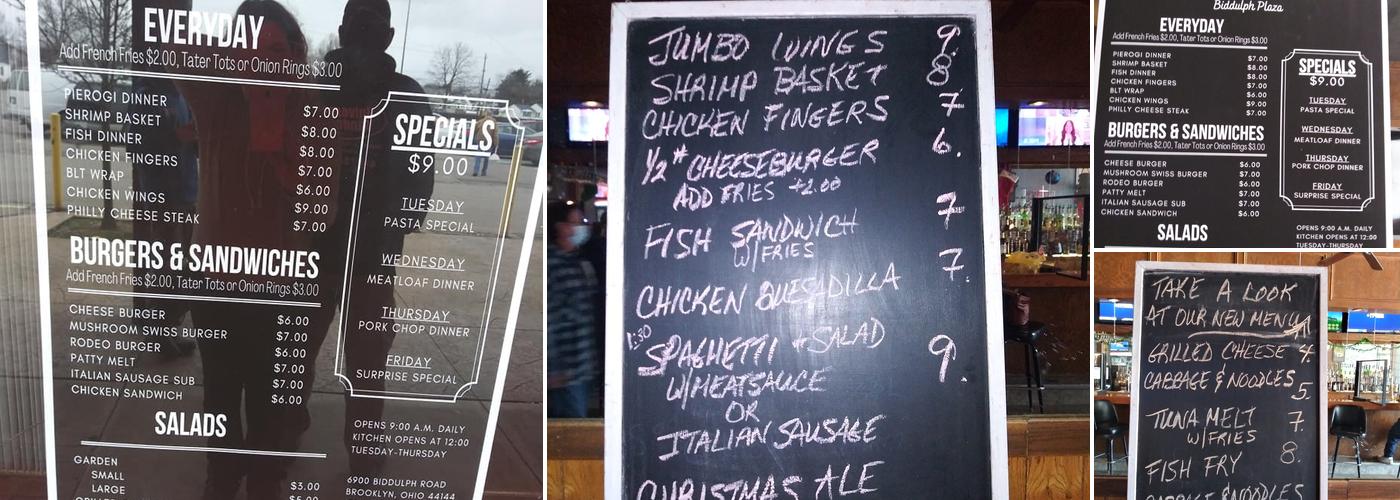 EVERYDAY
Add French Fries $2.00, Tater Tots or Onion Rings $3.00
PIEROGI DINNER $7.00
SHRIMP BASKET $8.00
FISH DINNER $8.00
CHICKEN FINGERS $7.00
BLT WRAP $6.00
CHICKEN WINGS $9.00
PHILLY CHEESE STEAK $7.00
BURGERS & SANDWICHES
Add French Fries $2.00, Tater Tots or Onion Rings $3.00
CHEESE BURGER $6.00
MUSHROOM SWISS BURGER $7.00
RODEO BURGER $6.00
PATTY MELT $7.00
ITALIAN SAUSAGE SUB $7.00
CHICKEN SANDWICH $6.00
SALADS
GARDEN
SMALL $3.00
LARGE
SPECIALS
$9.00
TUESDAY
PASTA SPECIAL
WEDNESDAY
MEATLOAF DINNER
THURSDAY
PORK CHOP DINNER
FRIDAY
SURPRISE SPECIAL
OPENS 9:00 A.M. DAILY
KITCHEN OPENS AT 12:00
TUESDAY-THURSDAY
6900 BIDDULPH ROAD
BROOKLYN, OHIO 44144
JUMBO WINGS 9.
SHRIMP BASKET 8.
CHICKEN FINGERS 7
1/2 # CHEESEBURGER 6.
ADD FRIES +2.00
FISH SANDWICH 7
W/FRIES
CHICKEN QUESADILLA 7.
1:30
SPAGHETTI + SALAD 9.
W/MEATSAUCE
OR
ITALIAN SAUSAGE
CHRISTMAS ALE
Biddulph Plaza
EVERYDAY
Add French Fries $2.00, Tater Tots or Onion Rings $3.00
PIEROGI DINNER $7.00
SHRIMP BASKET $8.00
FISH DINNER $8.00
CHICKEN FINGERS $7.00
BLT WRAP $6.00
CHICKEN WINGS $9.00
PHILLY CHEESE STEAK $7.00
BURGERS & SANDWICHES
Add French Fries $2.00, Tater Tots or Onion Rings $3.00
CHEESE BURGER $6.00
MUSHROOM SWISS BURGER $7.00
RODEO BURGER $6.00
PATTY MELT $7.00
ITALIAN SAUSAGE SUB $7.00
CHICKEN SANDWICH $6.00
SALADS
SPECIALS
$9.00
TUESDAY
PASTA SPECIAL
WEDNESDAY
MEATLOAF DINNER
THURSDAY
PORK CHOP DINNER
FRIDAY
SURPRISE SPECIAL
OPENS 9:00 A.M. DAILY
KITCHEN OPENS AT 12:00
TUESDAY-THURSDAY
TAKE A LOOK
AT OUR NEW MENU
GRILLED CHEESE 4
CABBAGE & NOODLES 5.
TUNA MELT 7.
W/FRIES
FISH FRY 8.